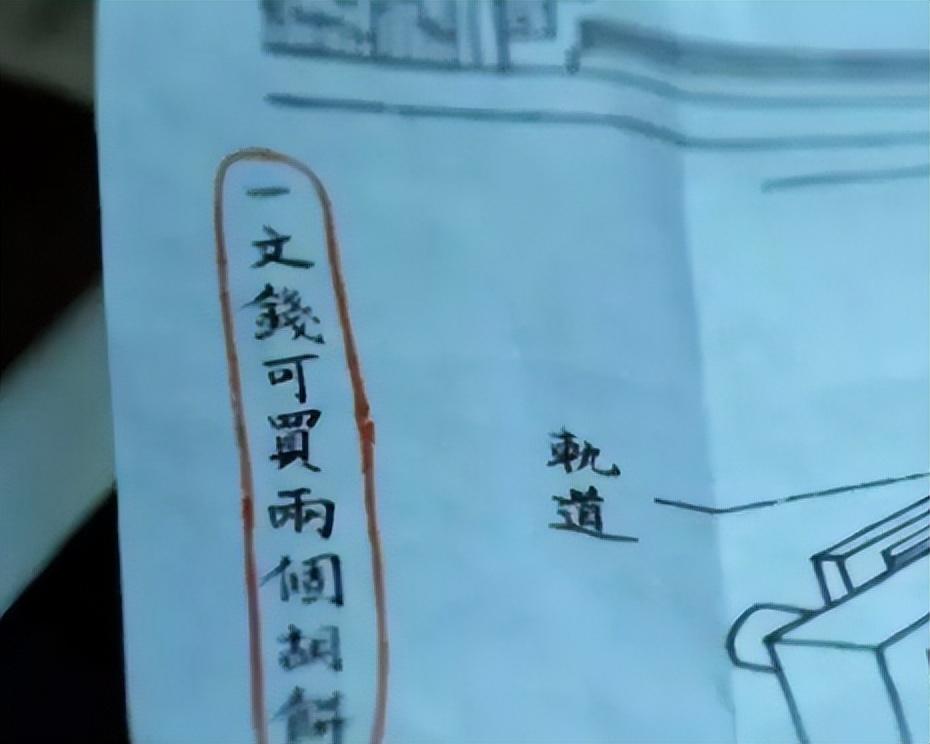 一文錢可買兩個胡餅
軌道